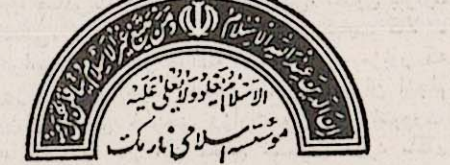 إن الدين عند الله الإسلام ومن يبتغ غير الإسلام دينا فلن يقبل منه
الإسلام يعلو ولا يعلى عليه
مؤسسه اسلامی نیویورک